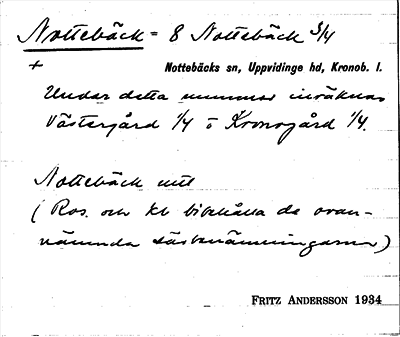 Nottebäck = 8 Nottebäck 3/4
+
Nottebäcks sn, Uppvidinge hd, Kronob. l.
Under detta nummer inräknas
Västergård 1/4 o Kronogård 1/4.
Nottebäck utt
( Ros. och kt bibehålla de ovan-
nämnda särbenämningarna)
FRITZ ANDERSSON 1934